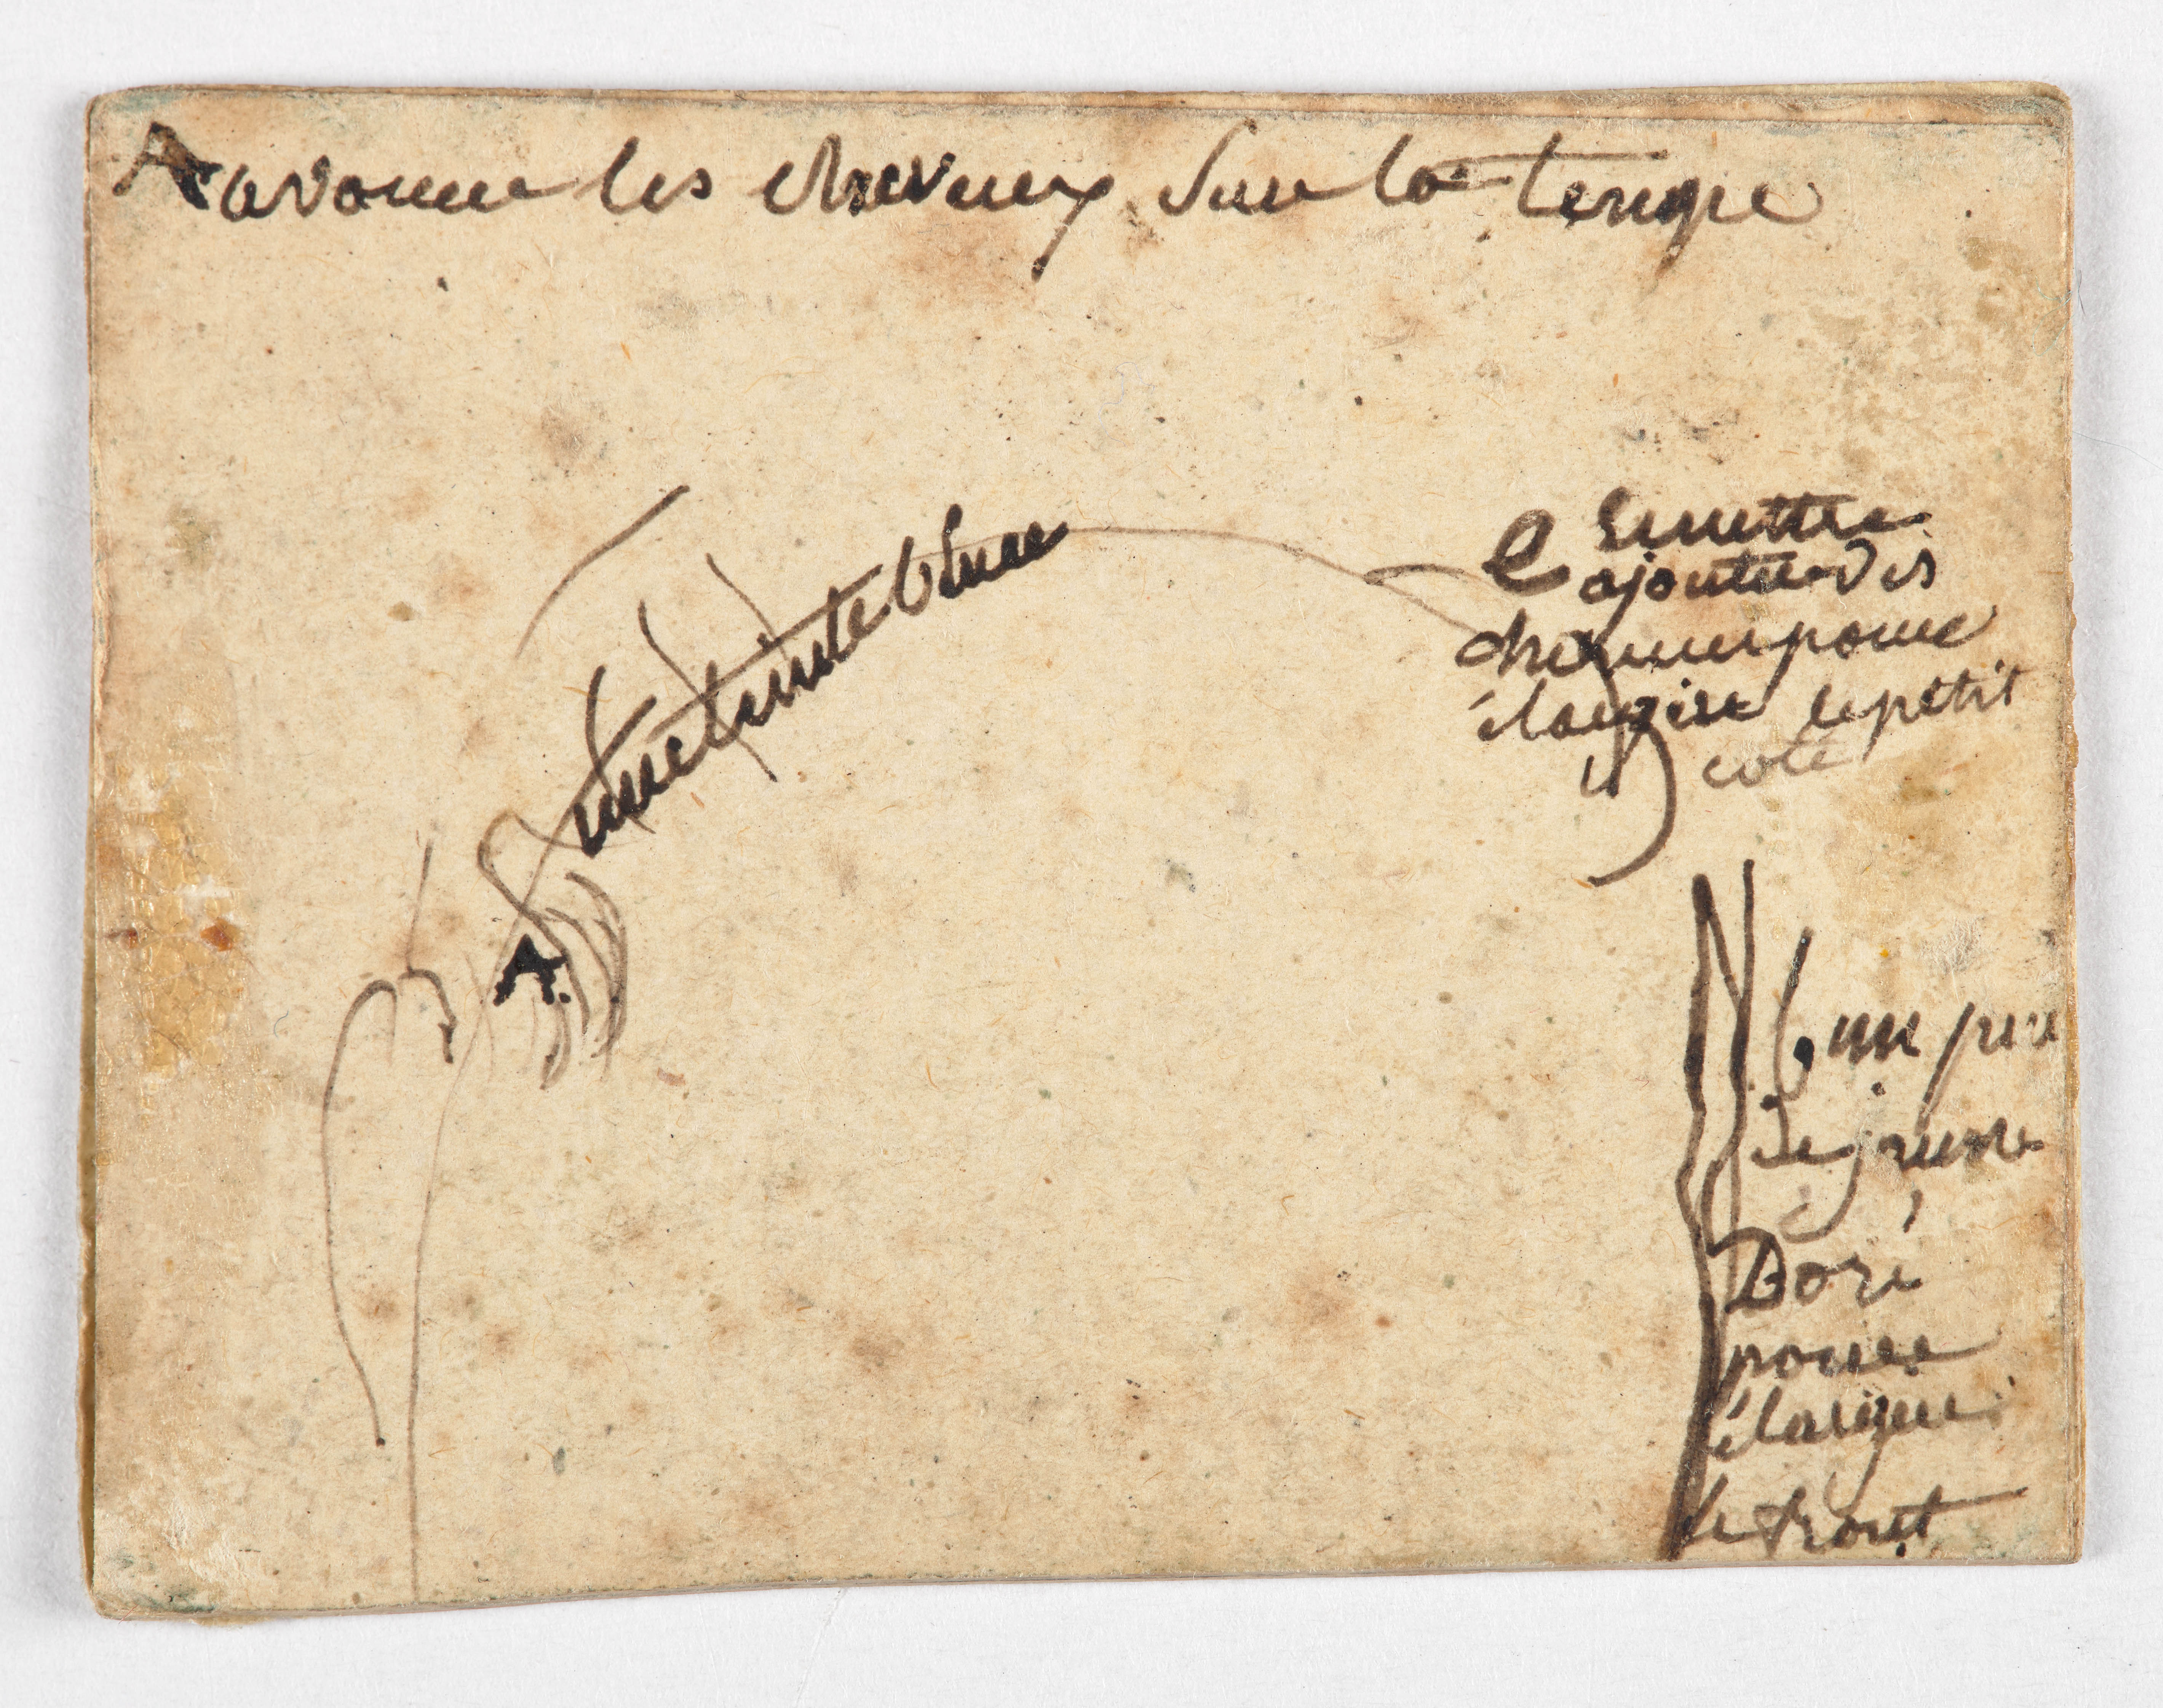 A avoner les cheveux sur la tempe
une teinte bleue
A.
C remettre
ajouter des
cheveux pour
élargir le petit
coté
b un peu
de jaune
Doré
pour
élargir
le front